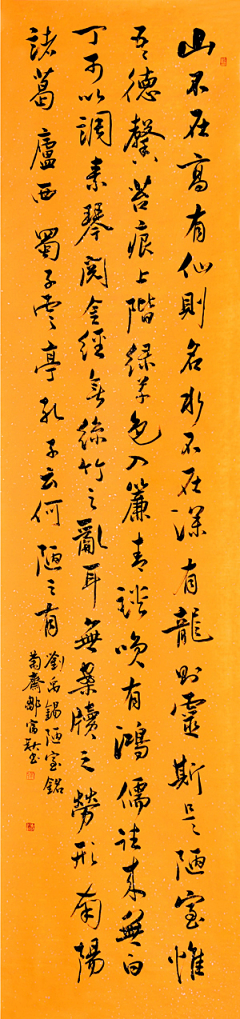 山不在高有仙則名水不在深有龍則靈斯是陋室惟
吾德馨苔痕上階綠草色入簾青談笑有鴻儒往來無白
丁可以調素琴閱金經無絲竹之亂耳無案牘之勞形南陽
諸葛廬西蜀子雲亭孔子云何陋之有
劉禹錫陋室銘
菊齋鄒富書